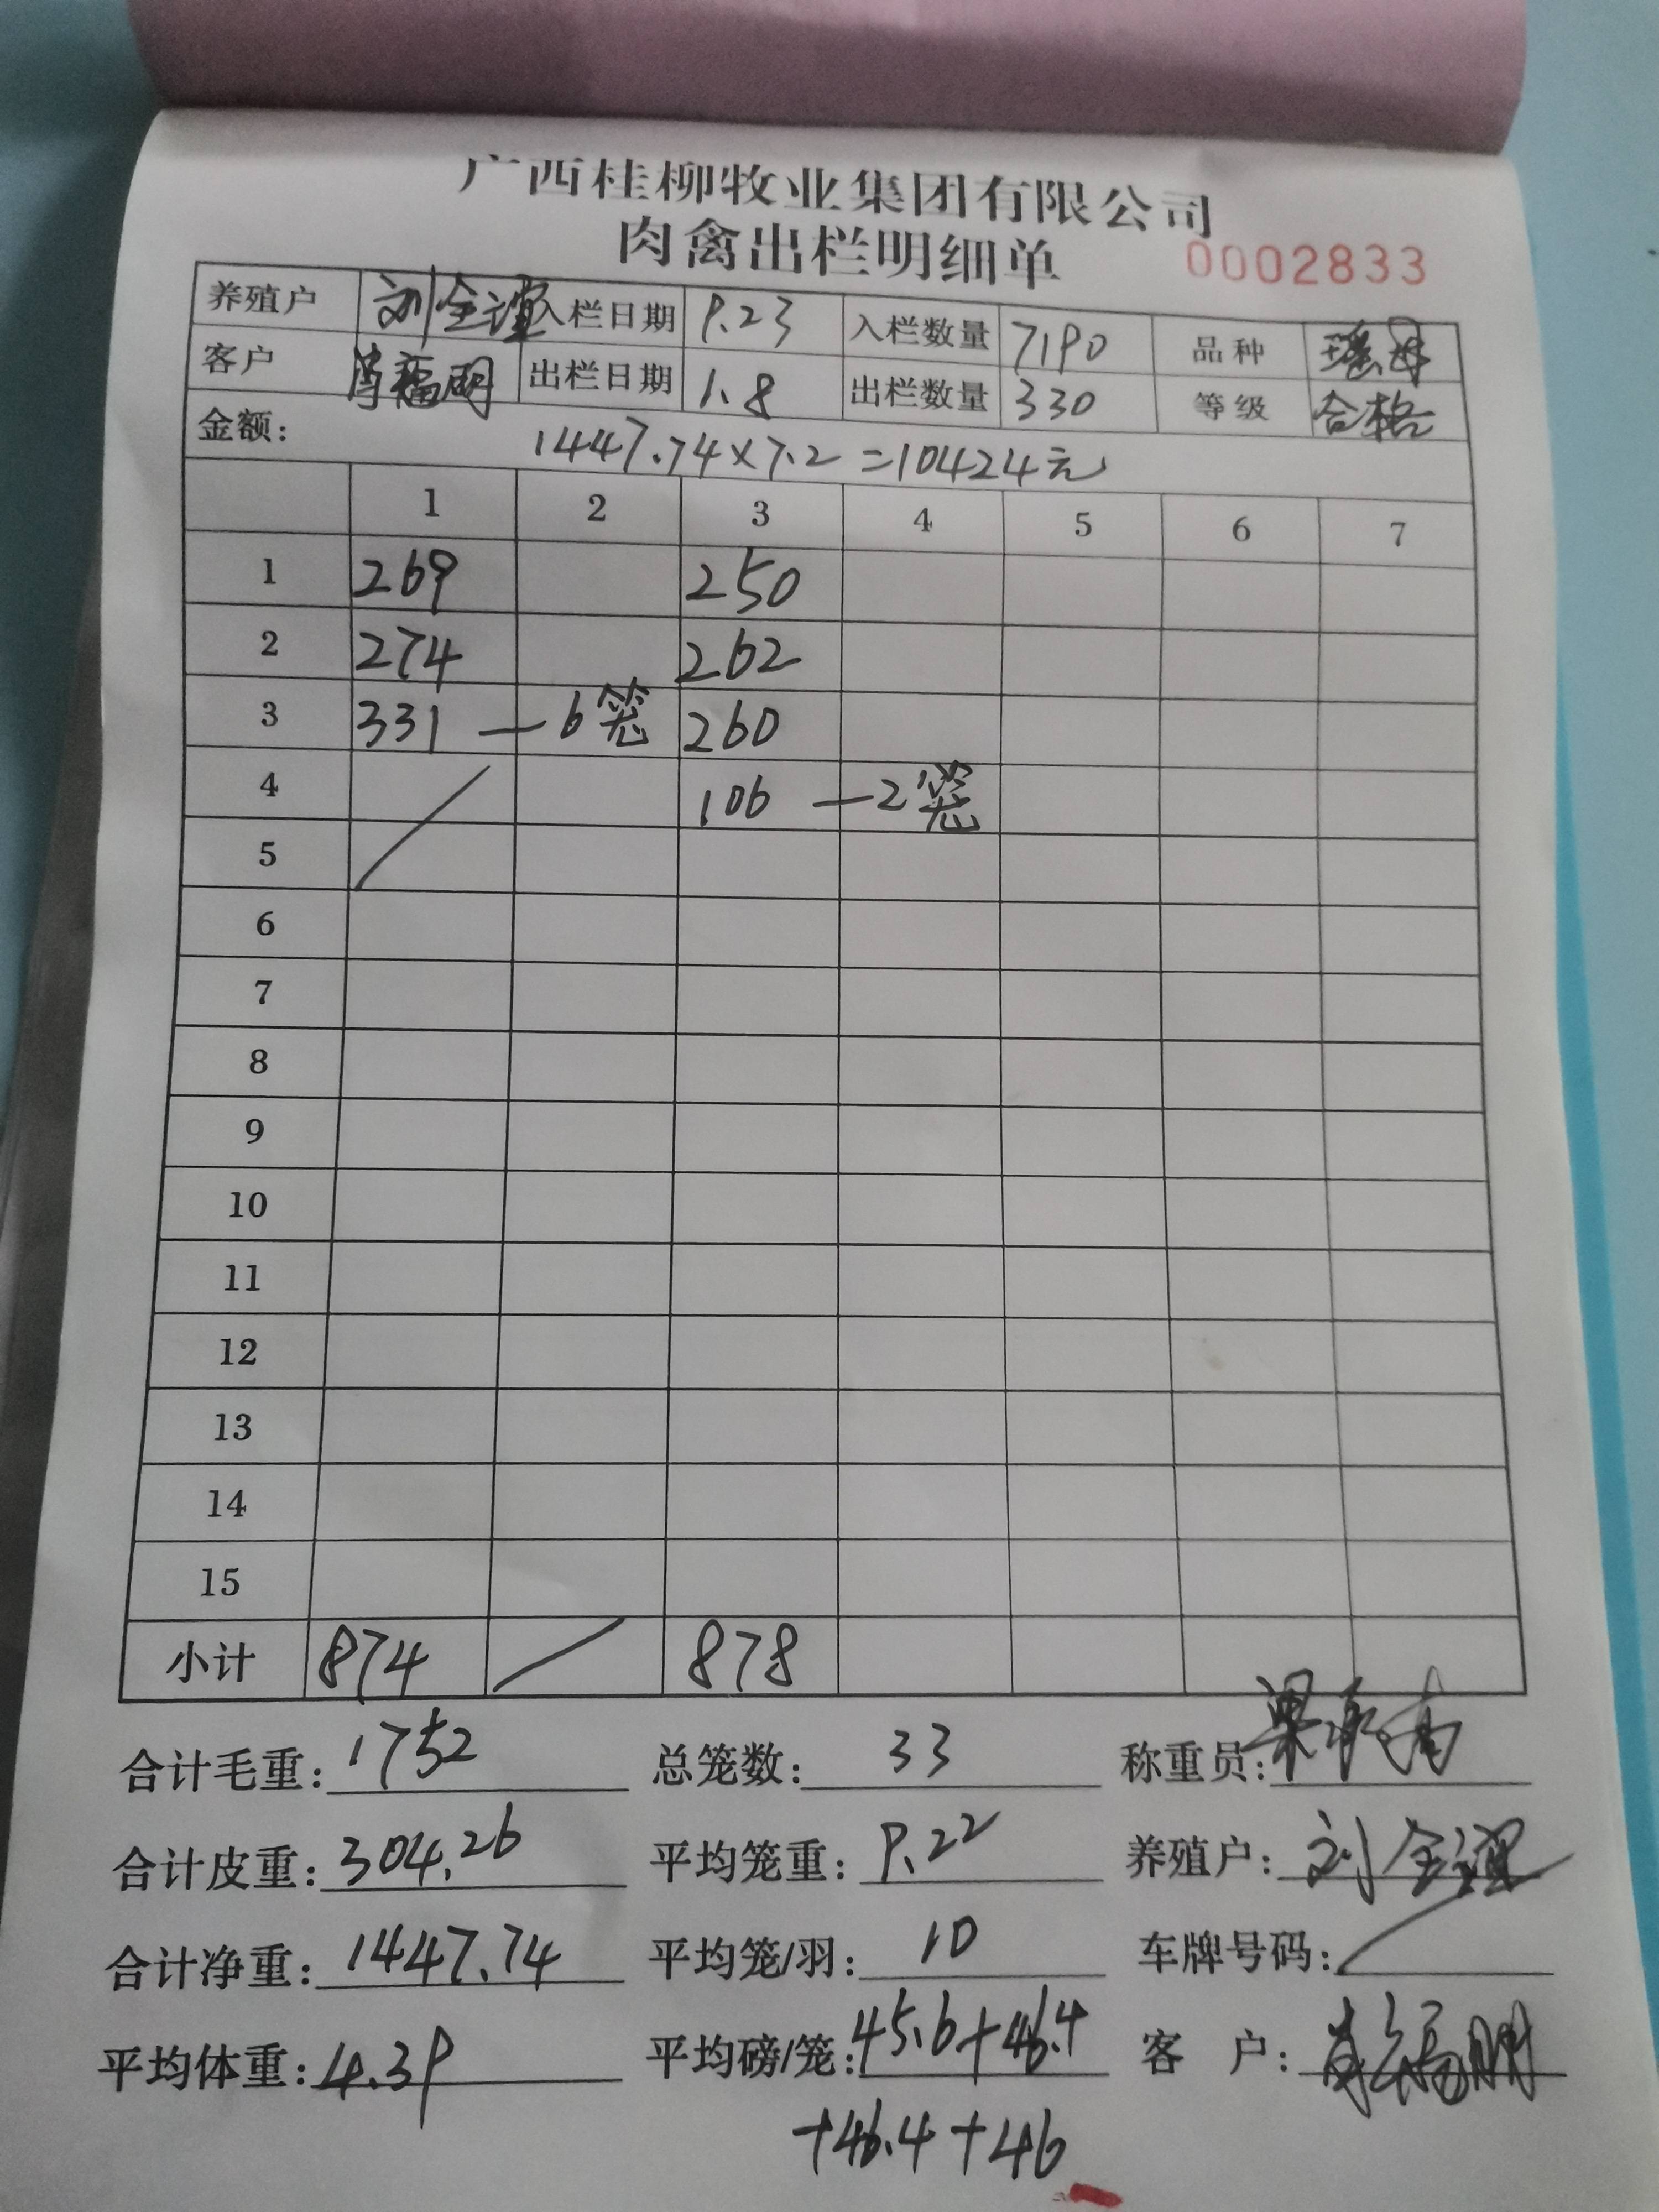 广西桂柳牧业集团有限公司
肉禽出栏明细单 0002833
养殖户 刘全谊 入栏日期 9.23 入栏数量 7190 品种 瑶母
客户 肖福明 出栏日期 1.8 出栏数量 330 等级 合格
金额: 1447.74×7.2=10424元
1 2 3 4 5 6 7
1 269 250
2 274 262
3 331 — 6笼 260
4 106 — 2笼
5
6
7
8
9
10
11
12
13
14
15
小计 874 878
合计毛重: 1752 总笼数: 33 称重员:
合计皮重: 304.26 平均笼重: 9.22 养殖户: 刘全谊
合计净重: 1447.74 平均笼/羽: 10 车牌号码:
平均体重: 4.39 平均磅/笼: 45.6+46.4 客户: 肖福明
+46.4+46